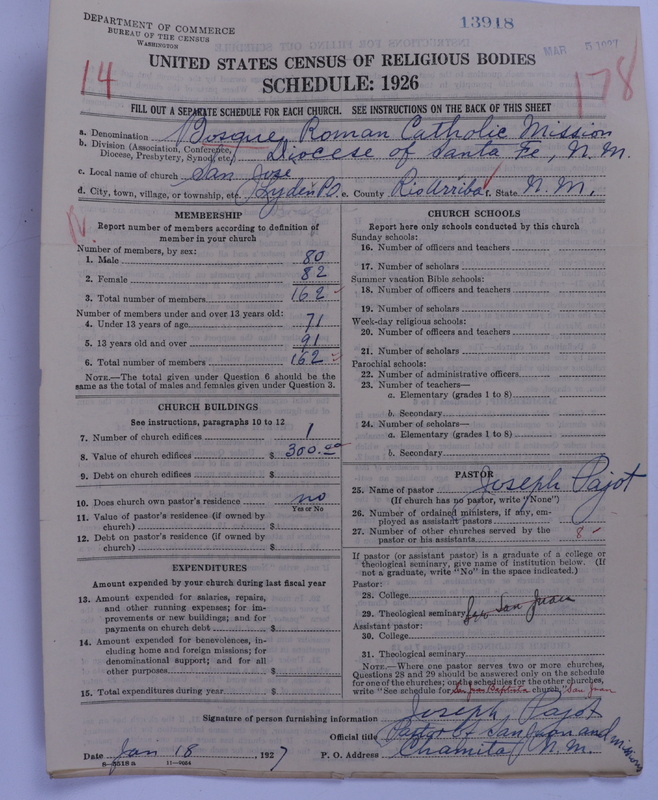 DEPARTMENT OF COMMERCE
BUREAU OF THE CENSUS
WASHINGTON
13918
MAR 5 1927
UNITED STATES CENSUS OF RELIGIOUS BODIES
SCHEDULE: 1926
14
178
FILL OUT A SEPARATE SCHEDULE FOR EACH CHURCH. SEE INSTRUCTIONS ON THE BACK OF THIS SHEET
a. Denomination Bosque, Roman Catholic Mission
b. Division (Association, Conference, Diocese, Presbytery, Synod, etc.) Diocese of Santa Fe, N. M.
c. Local name of church San Jose
d. City, town, village, or township, etc. Lyden P.O. e. County Rio Arriba f. State N. M.
N.
MEMBERSHIP
Report number of members according to definition of
member in your church
Number of members, by sex:
1. Male 80
2. Female 82
3. Total number of members 162
Number of members under and over 13 years old:
4. Under 13 years of age 71
5. 13 years old and over 91
6. Total number of members 162
NOTE.—The total given under Question 6 should be the
same as the total of males and females given under Question 3.
CHURCH BUILDINGS
See instructions, paragraphs 10 to 12
7. Number of church edifices 1
8. Value of church edifices $ 300.00
9. Debt on church edifices $
10. Does church own pastor's residence no
Yes or No
11. Value of pastor's residence (if owned by
church) $
12. Debt on pastor's residence (if owned by
church) $
EXPENDITURES
Amount expended by your church during last fiscal year
13. Amount expended for salaries, repairs,
and other running expenses; for im-
provements or new buildings; and for
payments on church debt $
14. Amount expended for benevolences, in-
cluding home and foreign missions; for
denominational support; and for all
other purposes $
15. Total expenditures during year $
CHURCH SCHOOLS
Report here only schools conducted by this church
Sunday schools:
16. Number of officers and teachers
17. Number of scholars
Summer vacation Bible schools:
18. Number of officers and teachers
19. Number of scholars
Week-day religious schools:
20. Number of officers and teachers
21. Number of scholars
Parochial schools:
22. Number of administrative officers
23. Number of teachers—
a. Elementary (grades 1 to 8)
b. Secondary
24. Number of scholars—
a. Elementary (grades 1 to 8)
b. Secondary
PASTOR
25. Name of pastor Joseph Pajot
(If church has no pastor, write "None")
26. Number of ordained ministers, if any, em-
ployed as assistant pastors
27. Number of other churches served by the
pastor or his assistants 8
If pastor (or assistant pastor) is a graduate of a college or
theological seminary, give name of institution below. (If
not a graduate, write "No" in the space indicated.)
Pastor:
28. College
29. Theological seminary See San Juan
Assistant pastor:
30. College
31. Theological seminary
NOTE.—Where one pastor serves two or more churches,
Questions 28 and 29 should be answered only on the schedule
for one of the churches; on the schedules for the other churches,
write "See schedule for San Juan Baptista church," San Juan
Signature of person furnishing information Joseph Pajot
Official title Pastor of San Juan and missions
Date Jan 18, 1927 P. O. Address Chamita, N. M.
8-5518a 11-9054